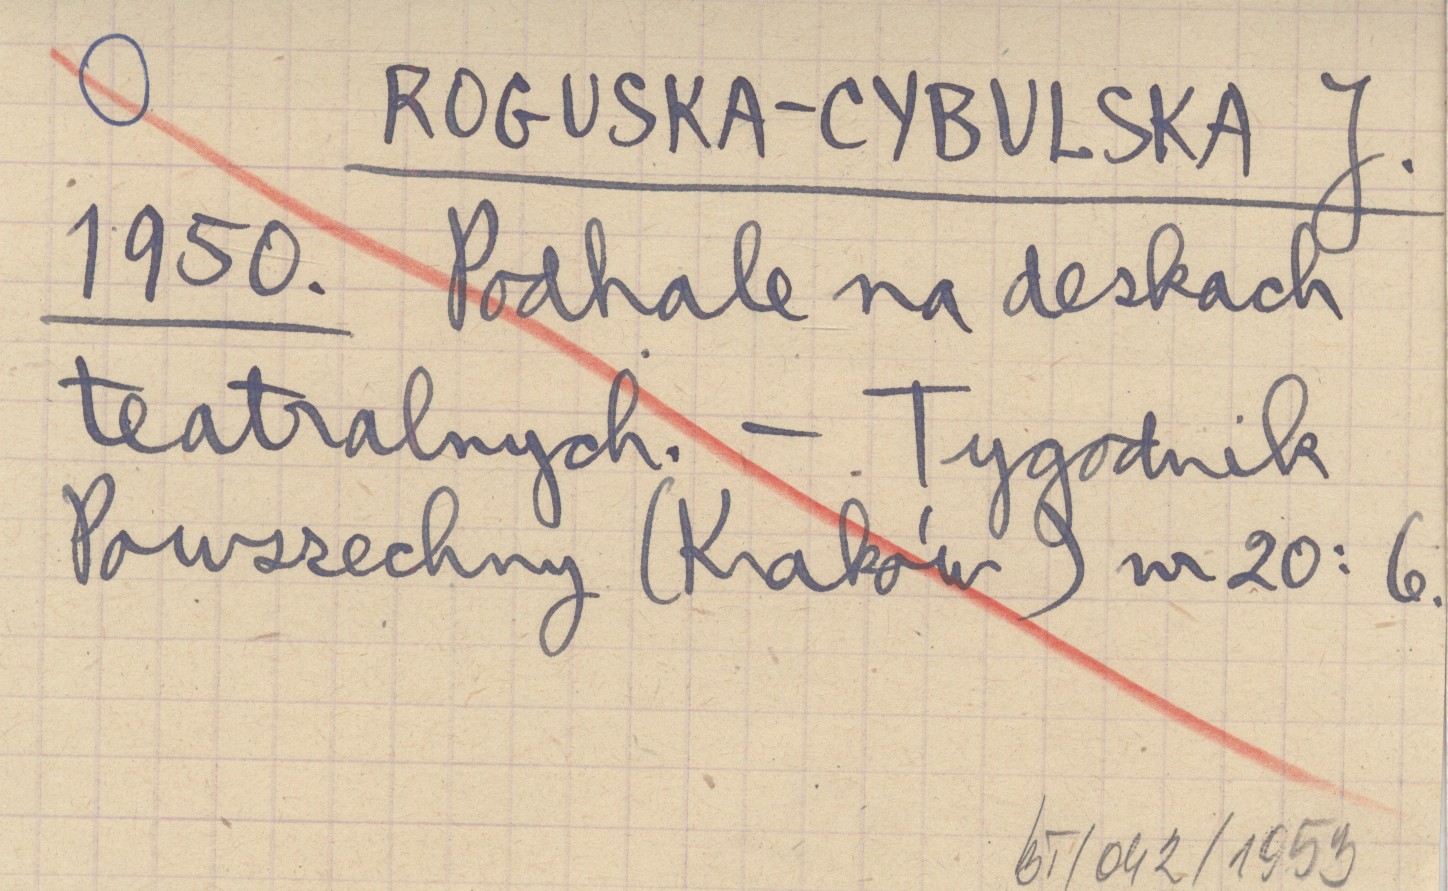 ROGUSKA-CYBULSKA J.
1950. Podhale na deskach
teatralnych. – Tygodnik
Powszechny (Kraków) nr 20: 6.
BT/042/1953